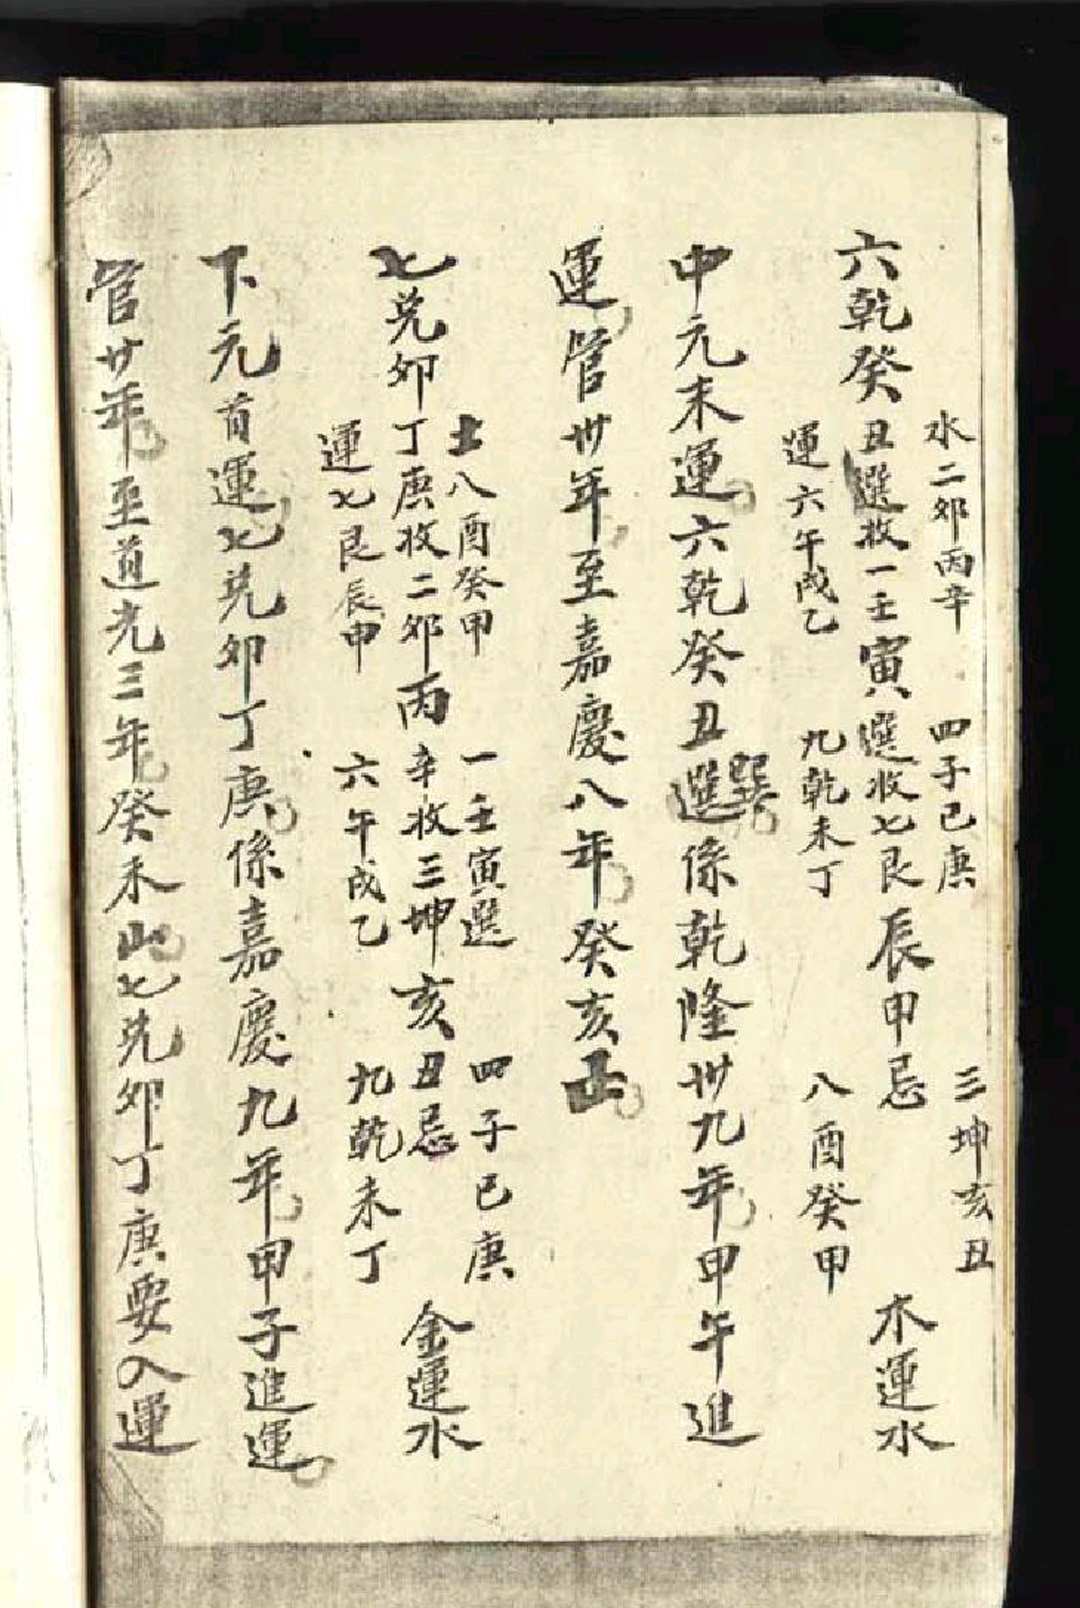 水二夘丙辛 四子己庚 三坤亥丑
六乾癸丑選收一壬寅選收七艮辰甲忌 木運水
運六午戌乙 九乾未丁 八酉癸甲
中元末運六乾癸丑選巽係乾隆卅九年甲午進
運管卅年至嘉慶八年癸亥止
土八酉癸甲 一壬寅選 四子己庚
七兌夘丁庚收二夘丙辛收三坤亥丑忌 金運水
運七艮辰申 六午戌乙 九乾未丁
下元首運七兌夘丁庚係嘉慶九年甲子進運
管廿年至道光三年癸未止七兌夘丁庚要入運